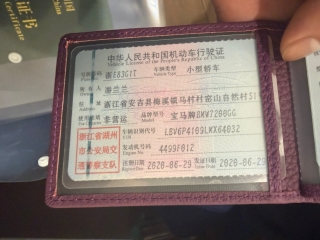 证书
Certificate
中华人民共和国机动车行驶证
Vehicle License of the People's Republic of China
号牌号码 浙E83G1T 车辆类型 小型轿车
Vehicle Type
所有人
住址 浙江省安吉县梅溪镇马村村
使用性质 非营运 品牌型号 宝马牌BMW7200GG
浙江省湖州
市公安局交
通警察支队
车辆识别代号 LBV6F4109LMX64032
发动机号码 4499F012
Engine No.
注册日期 2020-06-29 发证日期 2020-06-29